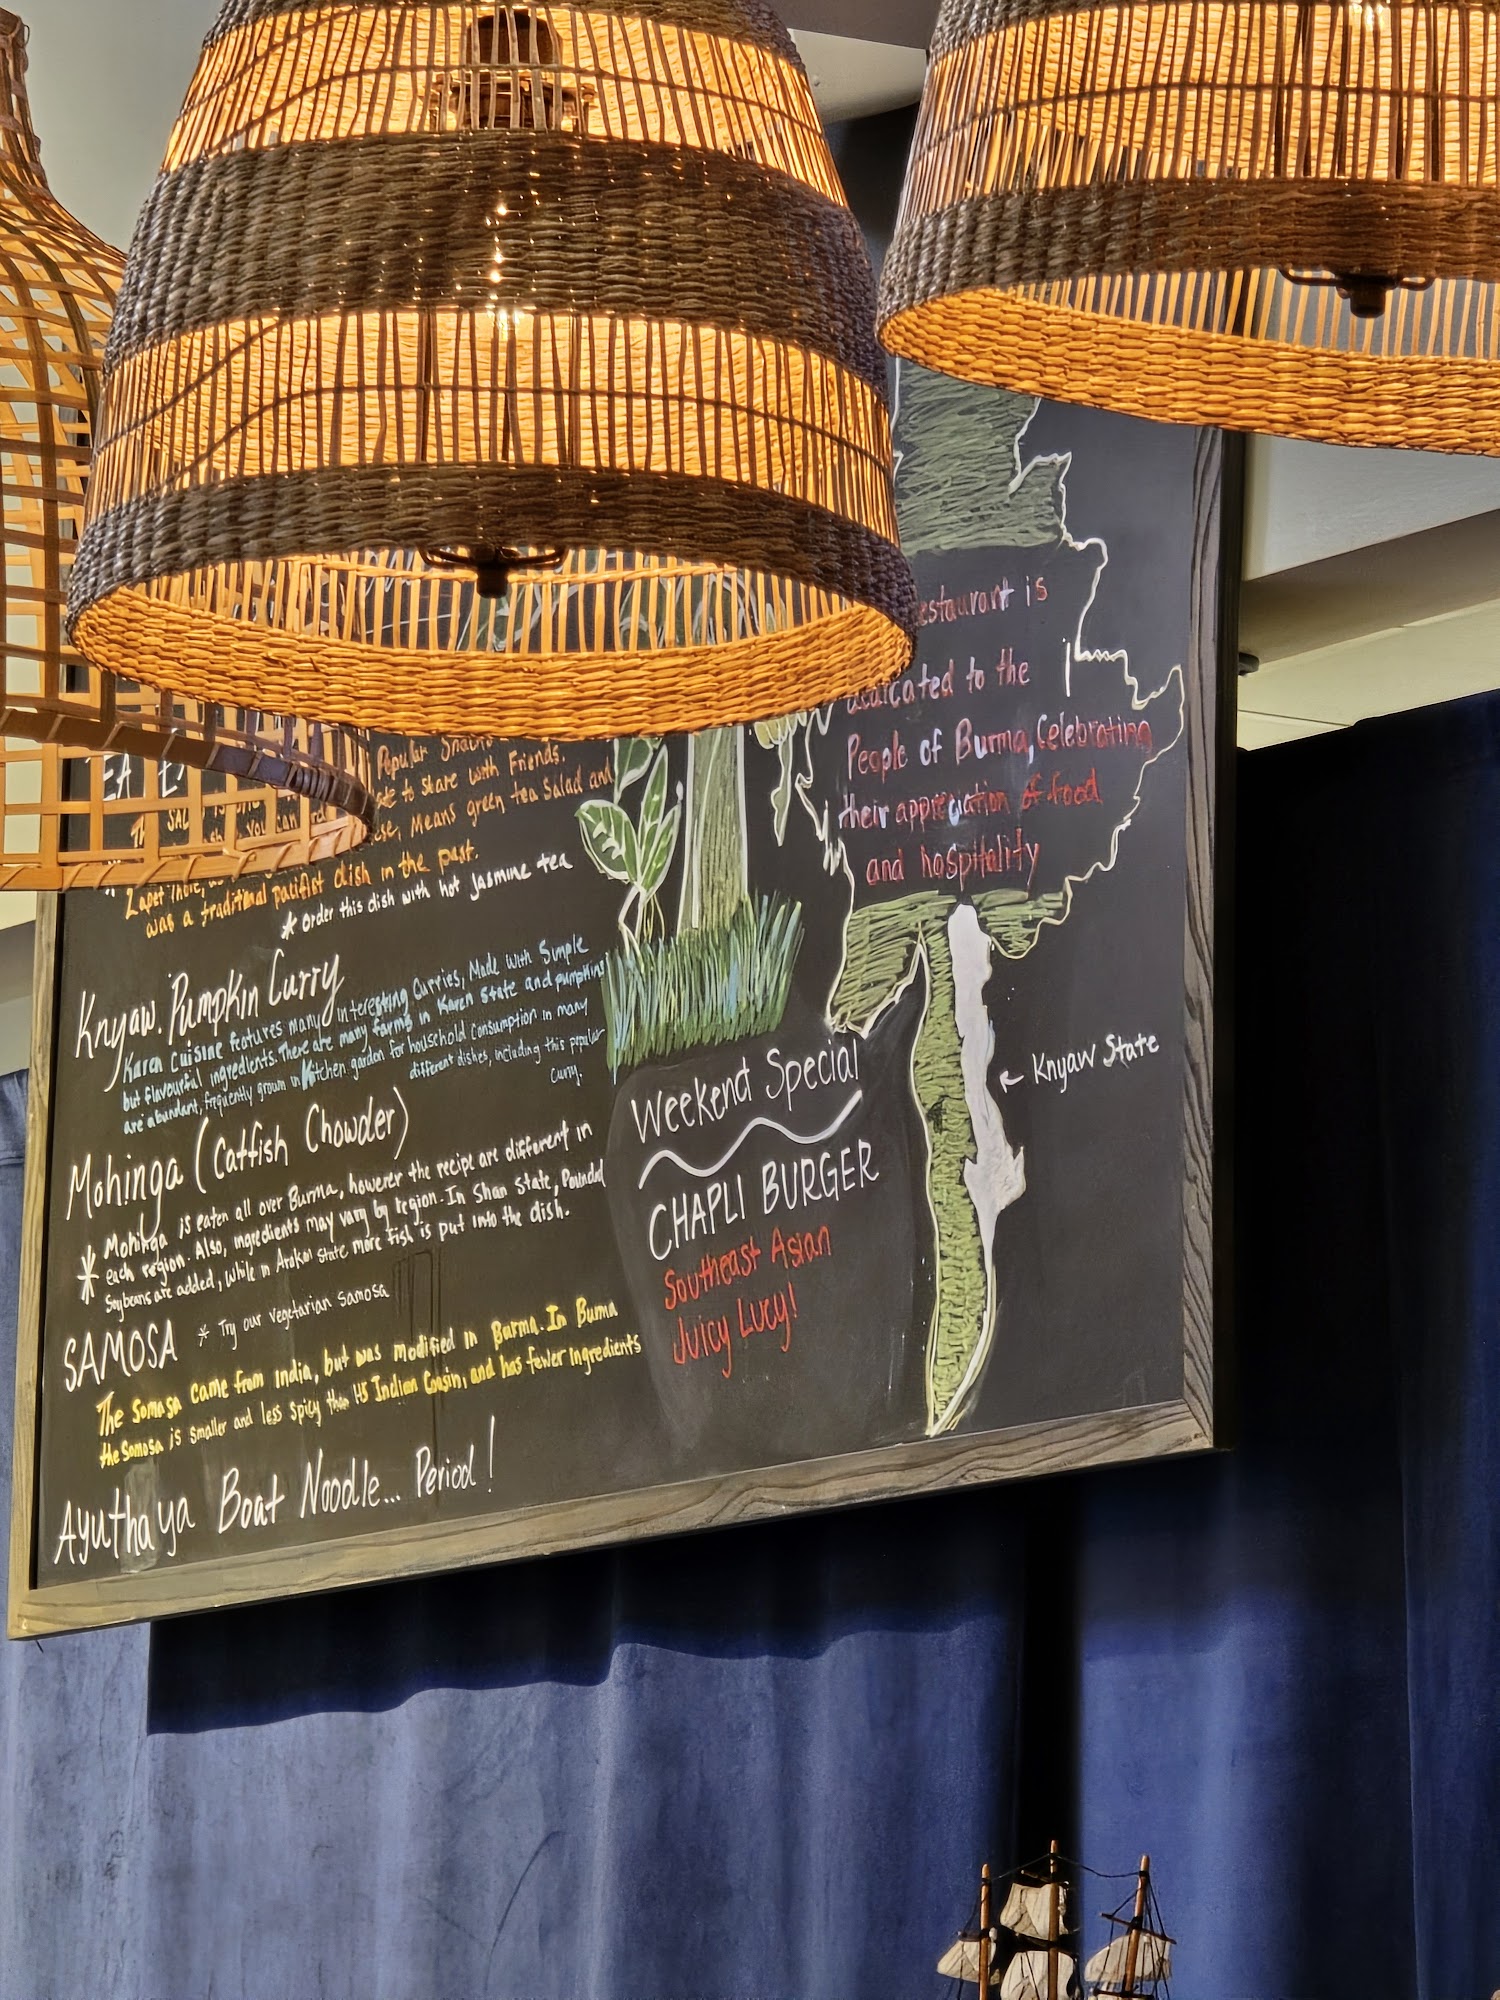 Popular Snacks
to share with Friends.
Means green tea Salad and
was a traditional pacifist dish in the past.
* Order this dish with hot Jasmine tea
Knyaw Pumpkin Curry
Karen Cuisine features many interesting Curries, Made with Simple
but flavourful ingredients. There are many farms in Karen State and pumpkins
are abundant, frequently grown in Kitchen garden for household Consumption in many
different dishes, including this popular
Curry.
Mohinga (Catfish Chowder)
* Mohinga is eaten all over Burma, however the recipe are different in
each region. Also, ingredients may vary by region. In Shan State, Pounded
Soybeans are added, while in Arakan State more fish is put into the dish.
SAMOSA * Try our vegetarian Samosa
The Somosa came from India, but was modified in Burma. In Burma
the Somosa is smaller and less spicy than its Indian Cousin, and has fewer ingredients
Ayuthaya Boat Noodle... Period!
Weekend Special
CHAPLI BURGER
Southeast Asian
Juicy Lucy!
is
Dedicated to the
People of Burma, Celebrating
their appreciation of food
and hospitality
Knyaw State